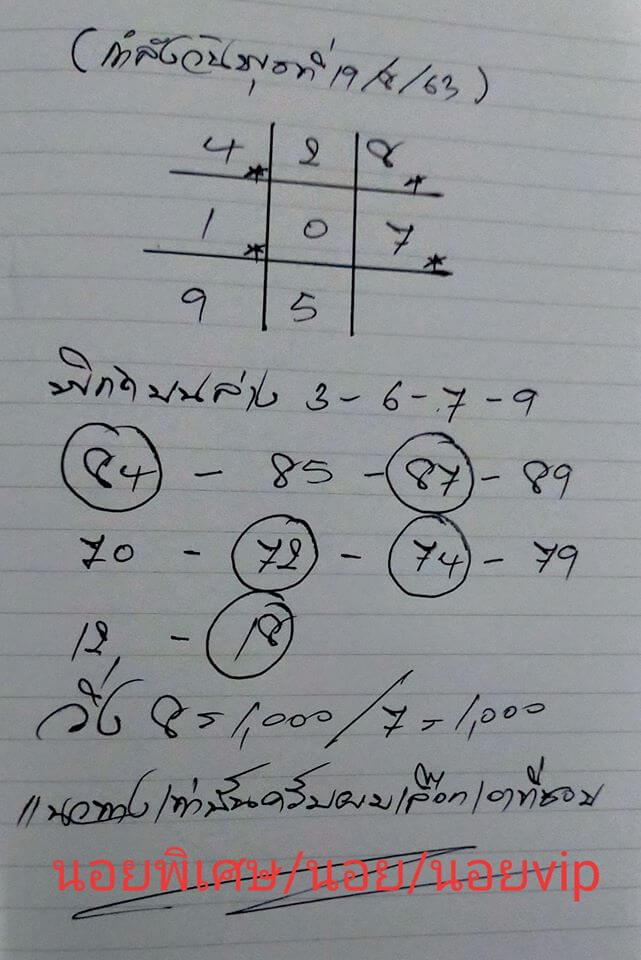 (กำลังวันพุธที่ 19/8/63)
4 2 8
1 0 7
9 5
พิกัดบนล่าง 3-6-7-9
84 - 85 - 87 - 89
70 - 72 - 74 - 79
12, - 18
วิ่ง 8=1,000/7=1,000
แนวทางเท่านั้นครับผมเลือกเอาที่ชอบ
นอยพิเศษ/นอย/นอยvip